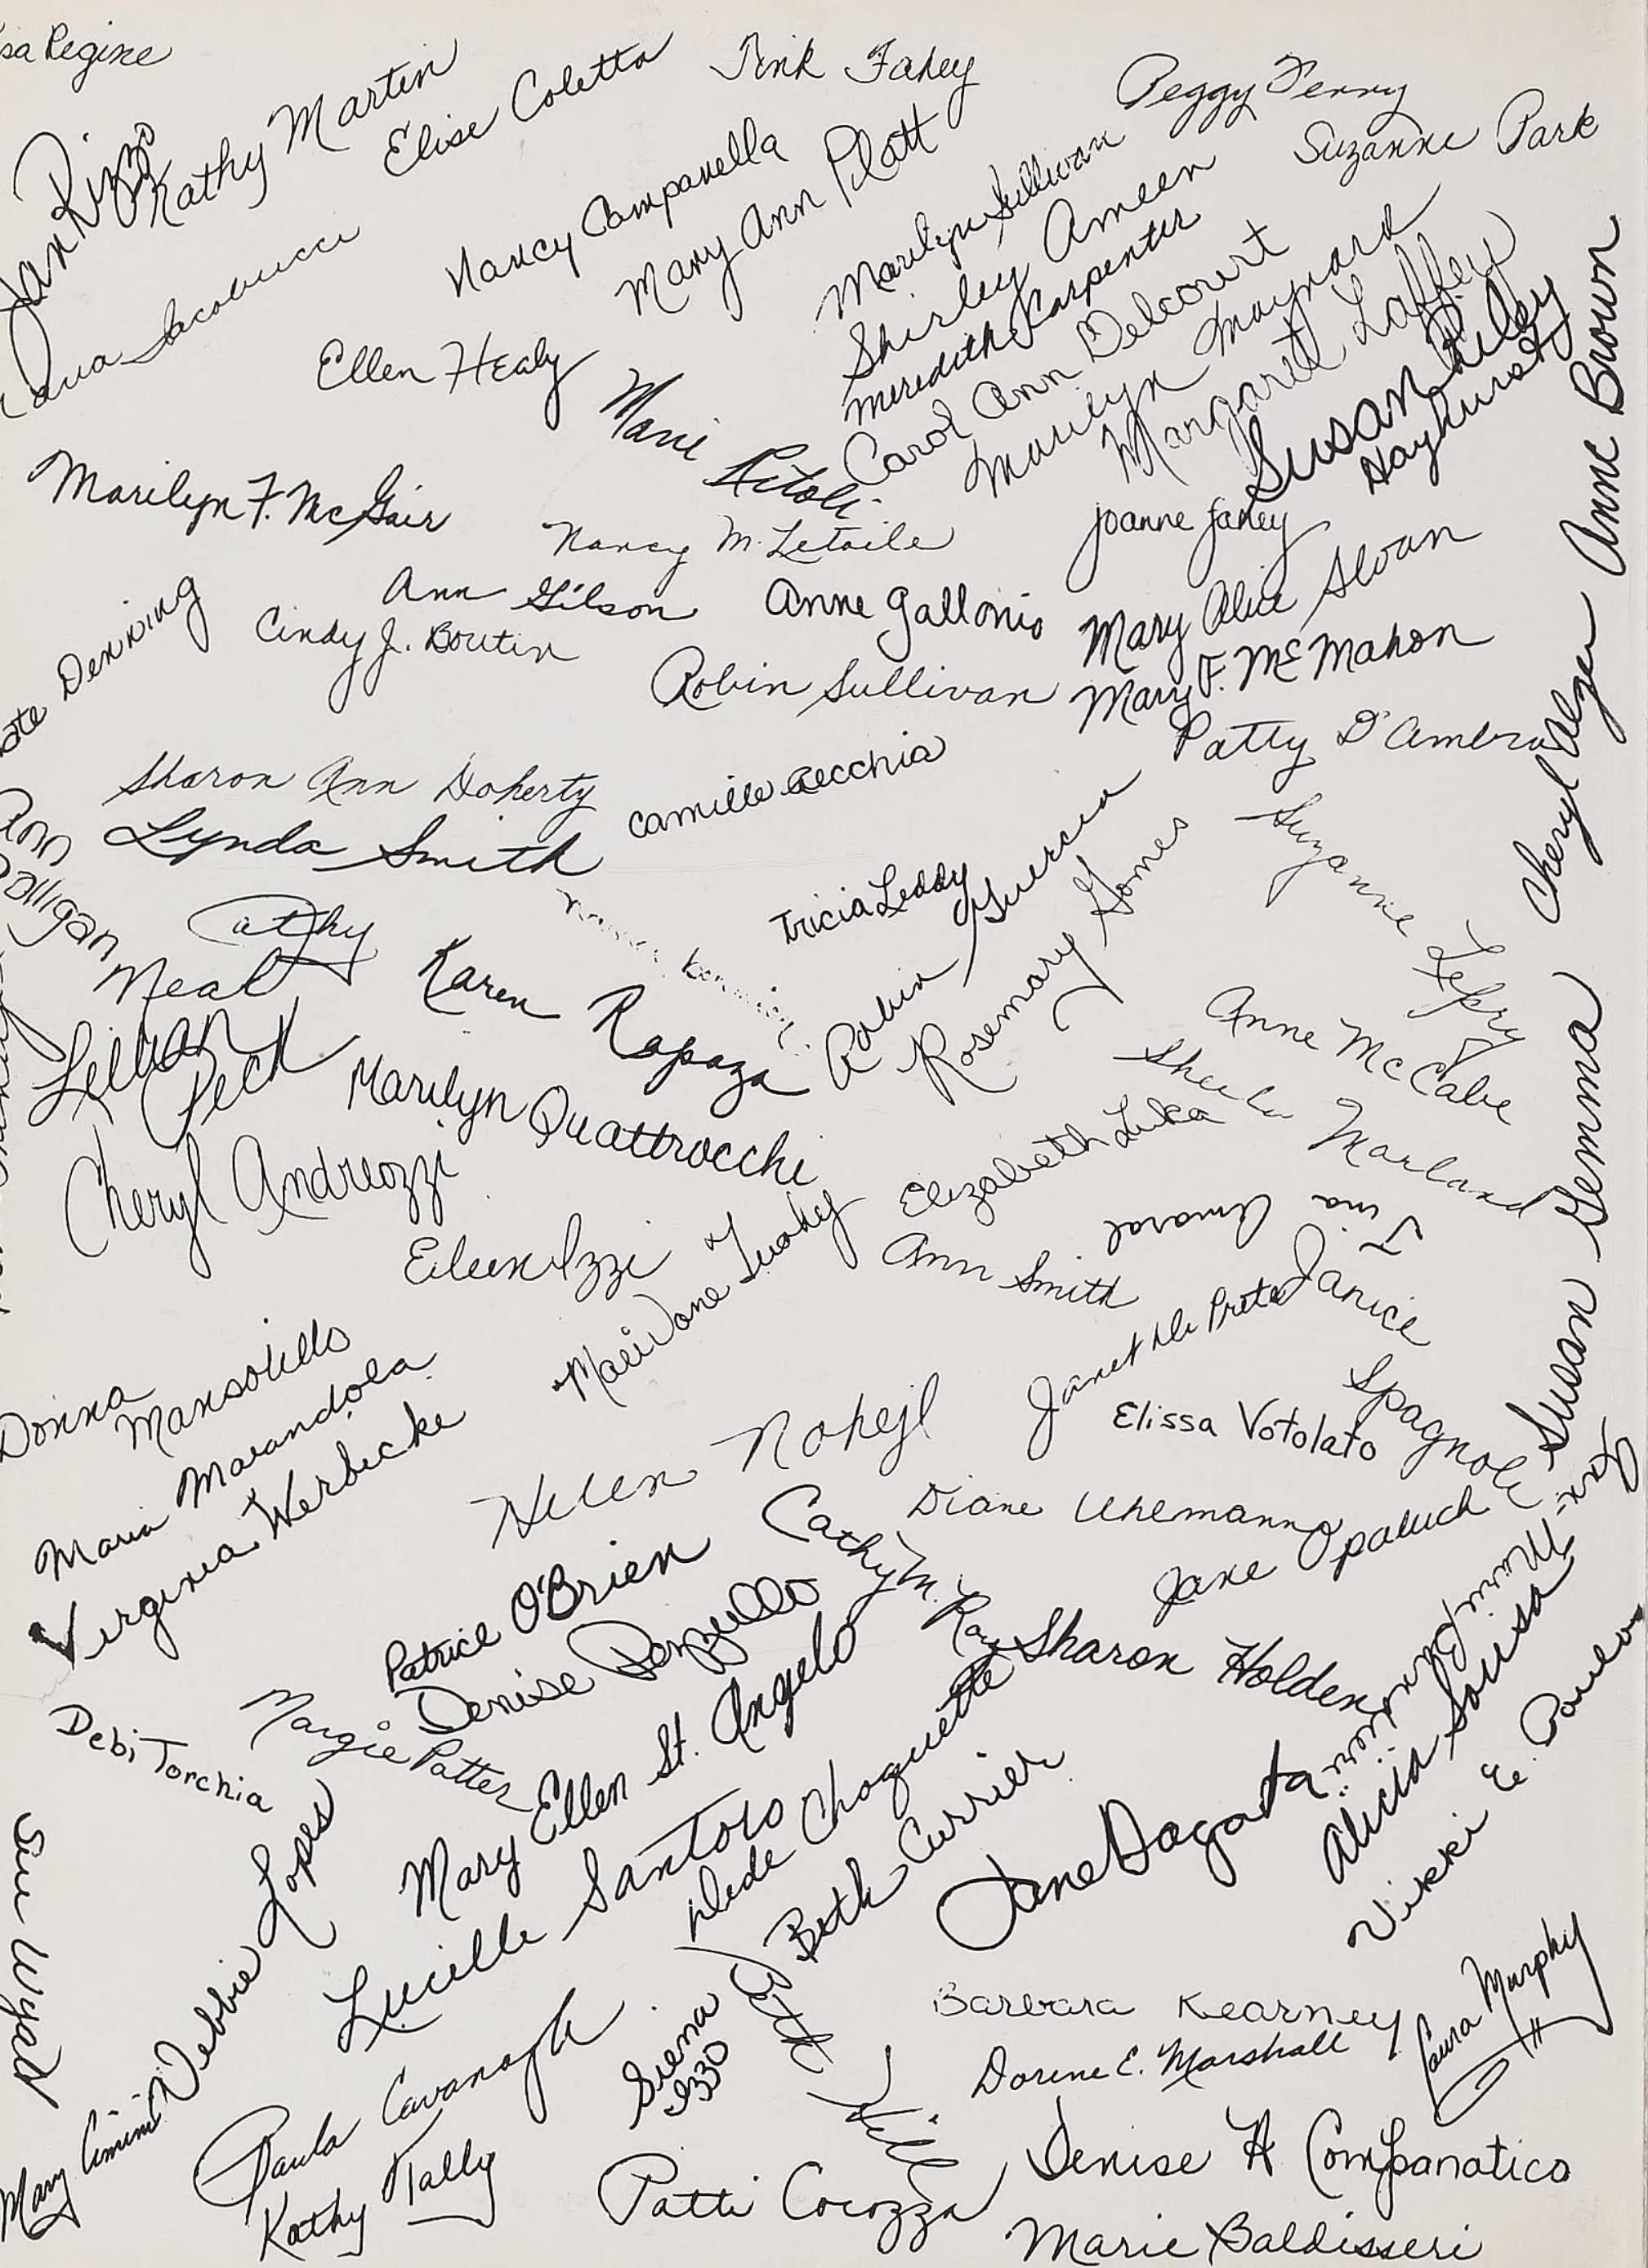 Regine
Kathy Martin
Elise Coletta
Tink Fahey
Peggy Ferry
Suzanne Park
Jan Rizzo
Nancy Campanella
Mary Ann Platt
Marilyn Sullivan
Shirley Ameen
Meredith Carpenter
Carol Ann Delcourt
Marilyn Maynard
Margaret Laffey
Susan Riley
Hayhurst
Iacobucci
Ellen Healy
Marie
Marilyn F. McGair
Nancy M. Letoile
Joanne Fahey
Anne Brown
Ann Gilson
Anne Gallonio
Mary Alice Sloan
Denning
Cindy J. Boutin
Robin Sullivan
Mary F. McMahon
Patty D'Ambra
Cheryl Alger
Sharon Ann Doherty
Camille Cecchia
Lynda Smith
Ann
Tricia Leddy
Robin Guercia
Rosemary Gomes
Suzanne Lepry
Cathy Neal
Karen Rapoza
Anne McCabe
Lillian Peck
Marilyn Quattrocchi
Sheila Marland
Cheryl Andreozzi
Elizabeth Luka
Tina Amaral
Susan Gemma
Eileen Izzi
Mari Jane Tuohy
Ann Smith
Janet Del Prete
Janice Spagnole
Donna Mansolillo
Maria Marandola
Virginia Werbecke
Helen Nohejl
Elissa Votolato
Diane Uhemann
Cathy M. Ray
Jane Opaluch
Patrice O'Brien
Denise Pezzullo
Sharon Holden
Margie Patter
Debi Torchia
Mary Ellen St. Angelo
Alicia Sousa
Vikki E.
Lucille Santoro
Dede Choquette
Beth Currier
Jane Dagata
Debbie Lopes
Sue Wyad
Barbara Kearney
Laura Murphy
Dorene E. Marshall
Siena Izzo
Beth
Paula Cavanagh
Mary Cimini
Kathy Tally
Patti Cocozza
Denise A Companatico
Marie Baldisseri